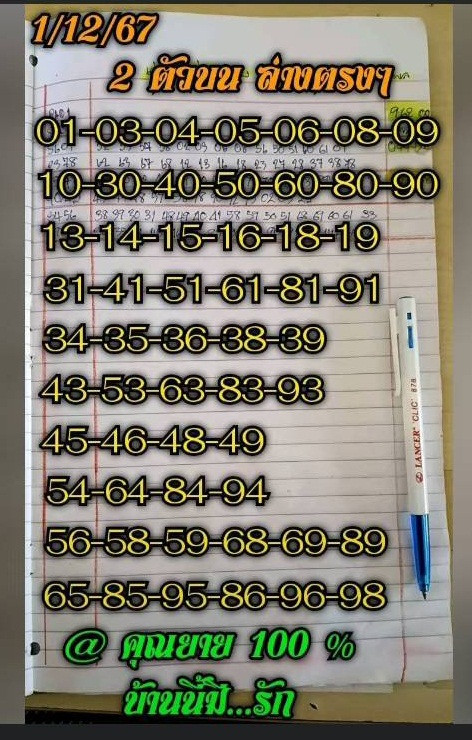 1/12/67
2 ตัวบน ล่างตรงๆ
01-03-04-05-06-08-09
10-30-40-50-60-80-90
13-14-15-16-18-19
31-41-51-61-81-91
34-35-36-38-39
43-53-63-83-93
45-46-48-49
54-64-84-94
56-58-59-68-69-89
65-85-95-86-96-98
LANCER CLIC 878
@ คุณยาย 100 %
บ้านนี้มี...รัก